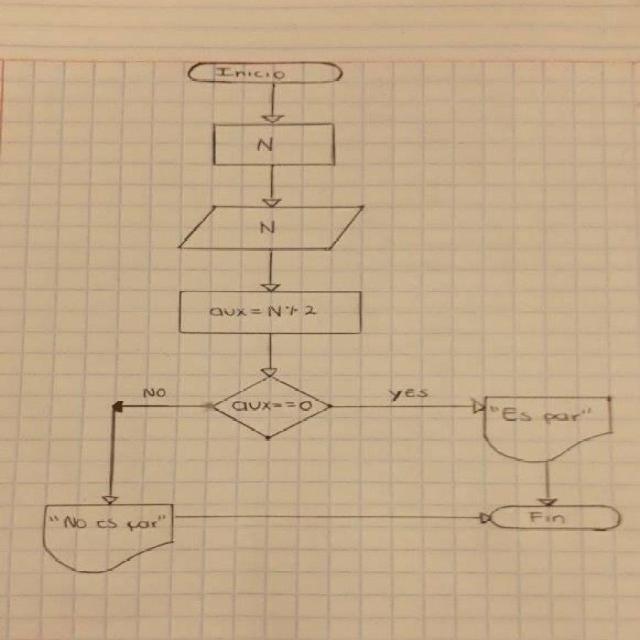 Inicio
N
N
aux = N % 2
aux == 0
NO
YES
"Es par"
"No es par"
Fin